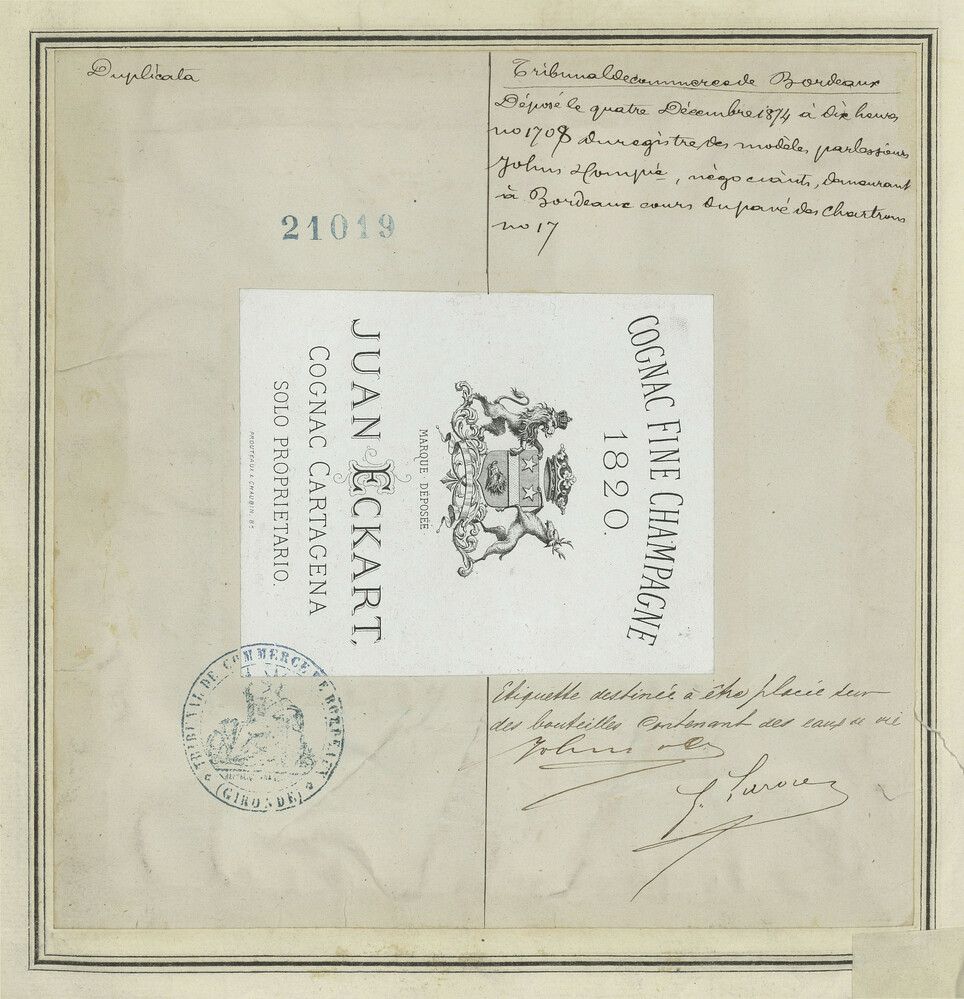 Duplicata
Tribunal de commerce de Bordeaux
Déposé le quatre Décembre 1874 à dix heures
no 1708 du registre des modèles par les sieurs
Johns & Compie, négociants, demeurant
à Bordeaux cours du pavé des Chartrons
no 17
21019
COGNAC FINE CHAMPAGNE
1820.
MARQUE DÉPOSÉE.
JUAN ECKART,
COGNAC CARTAGENA
SOLO PROPRIETARIO.
Etiquette destinée à être placée sur
des bouteilles contenant des eaux de vie
Johns
TRIBUNAL DE COMMERCE DE BORDEAUX
(GIRONDE)